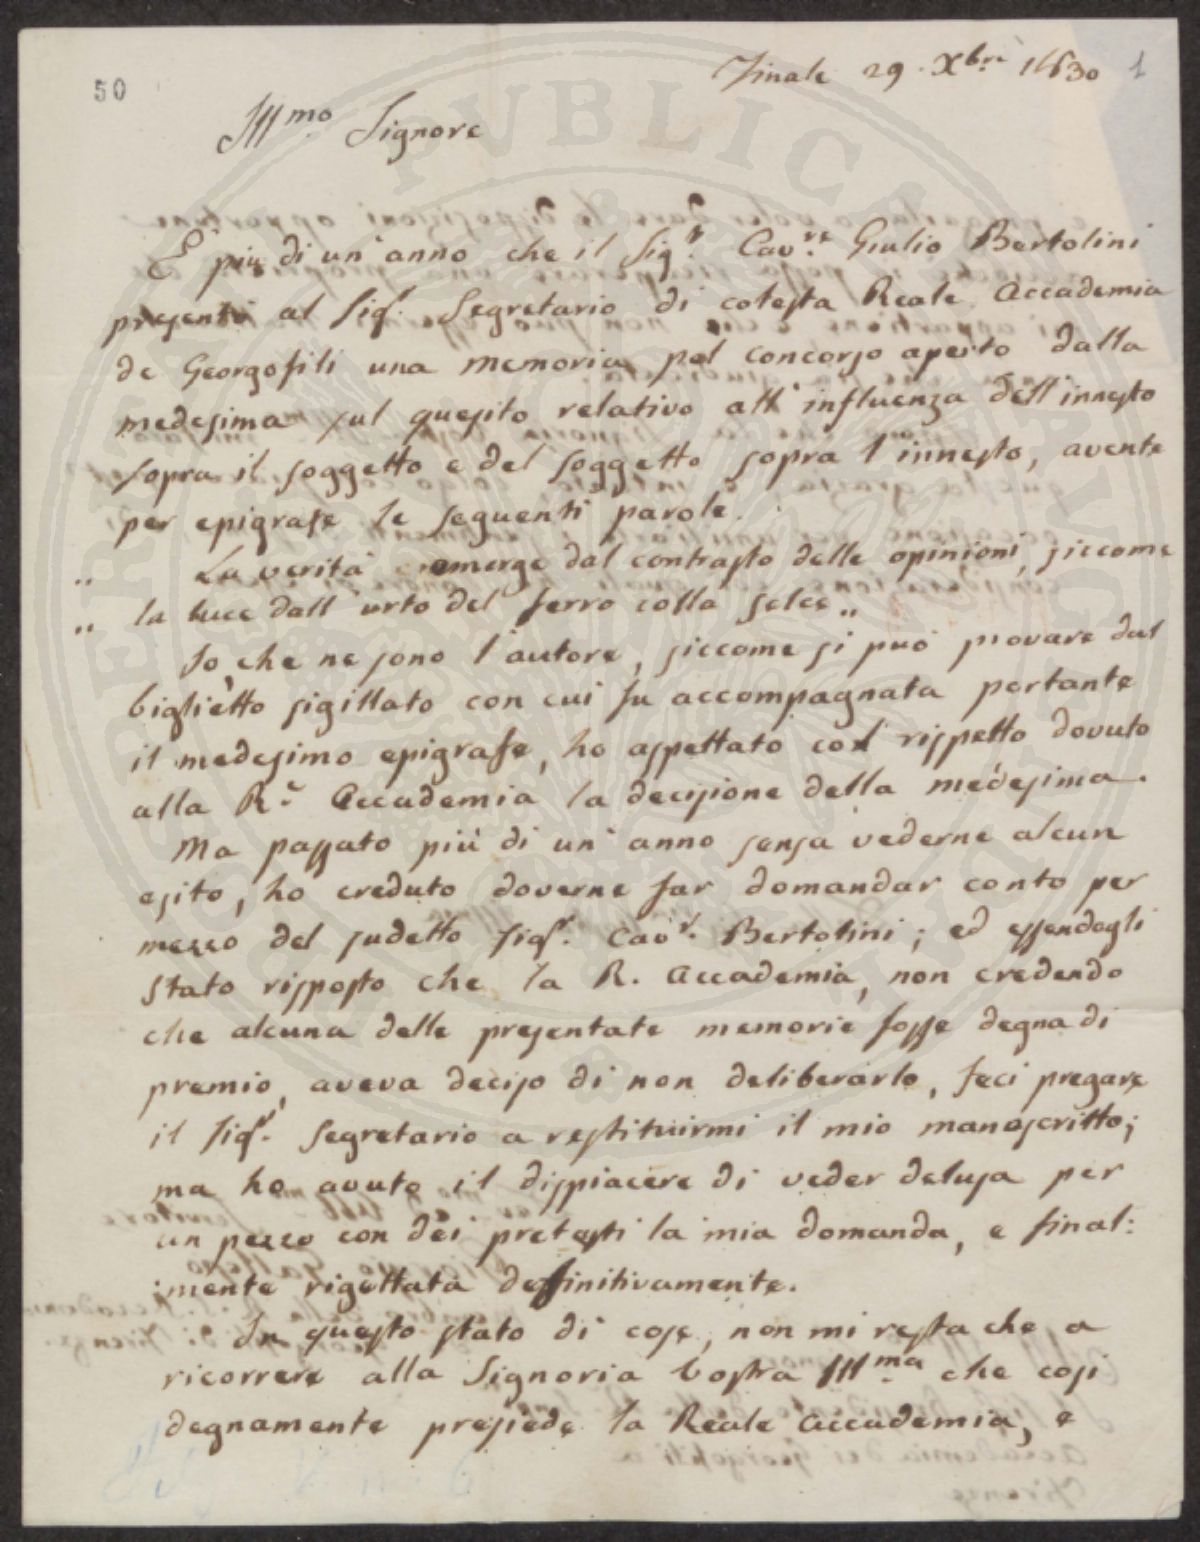 50
Finale 29. Xbre 1830 1
Illmo Signore
È più di un'anno che il Sigr. Cavre. Giulio Bertolini
presentò al Sigr. Segretario di cotesta Reale Accademia
de Georgofili una memoria pel concorso aperto dalla
medesima sul quesito relativo all'influenza dell'innesto
sopra il soggetto e del soggetto sopra l'innesto, avente
per epigrafe le seguenti parole.
„ La verità emerge dal contrasto delle opinioni, siccome
„ la luce dall'urto del ferro colla selce „
Io, che ne sono l'autore, siccome si può provare dal
biglietto sigillato con cui fu accompagnata portante
il medesimo epigrafe, ho aspettato col rispetto dovuto
alla Re Accademia la decisione della medesima.
Ma passato più di un'anno senza vederne alcun
esito, ho creduto doverne far domandar conto per
mezzo del sudetto Sigr. Cavr. Bertolini; ed essendogli
stato risposto che la R. Accademia, non credendo
che alcuna delle presentate memorie fosse degna di
premio, aveva deciso di non deliberarlo, feci pregare
il Sigr. Segretario a restituirmi il mio manoscritto;
ma ho avuto il dispiacere di veder delusa per
un pezzo con dei pretesti la mia domanda, e final:
:mente rigettata deffinitivamente.
In questo stato di cose, non mi resta che a
ricorrere alla Signoria Vostra Illma che così
degnamente presiede la Reale Accademia, e